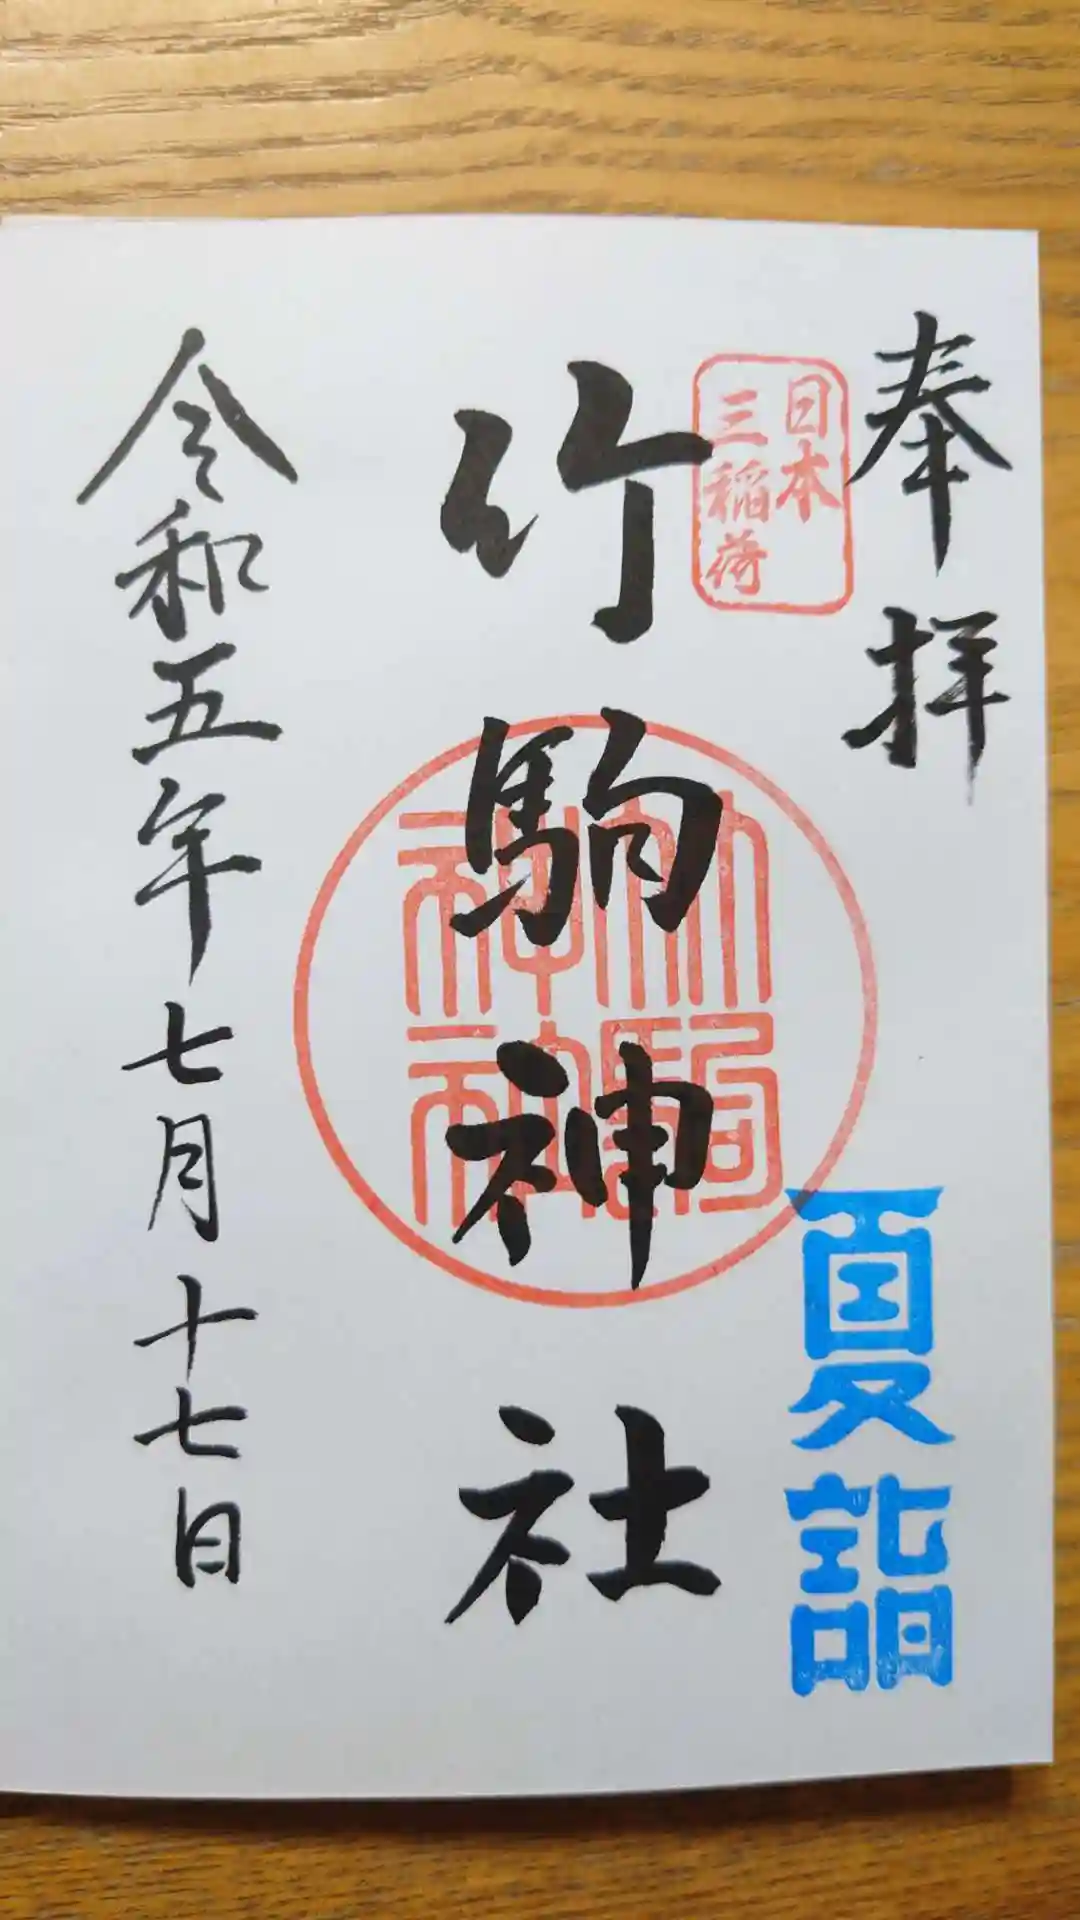 奉拝
日本
三稲荷
竹駒神社
竹駒
神社
夏詣
令和五年七月十七日